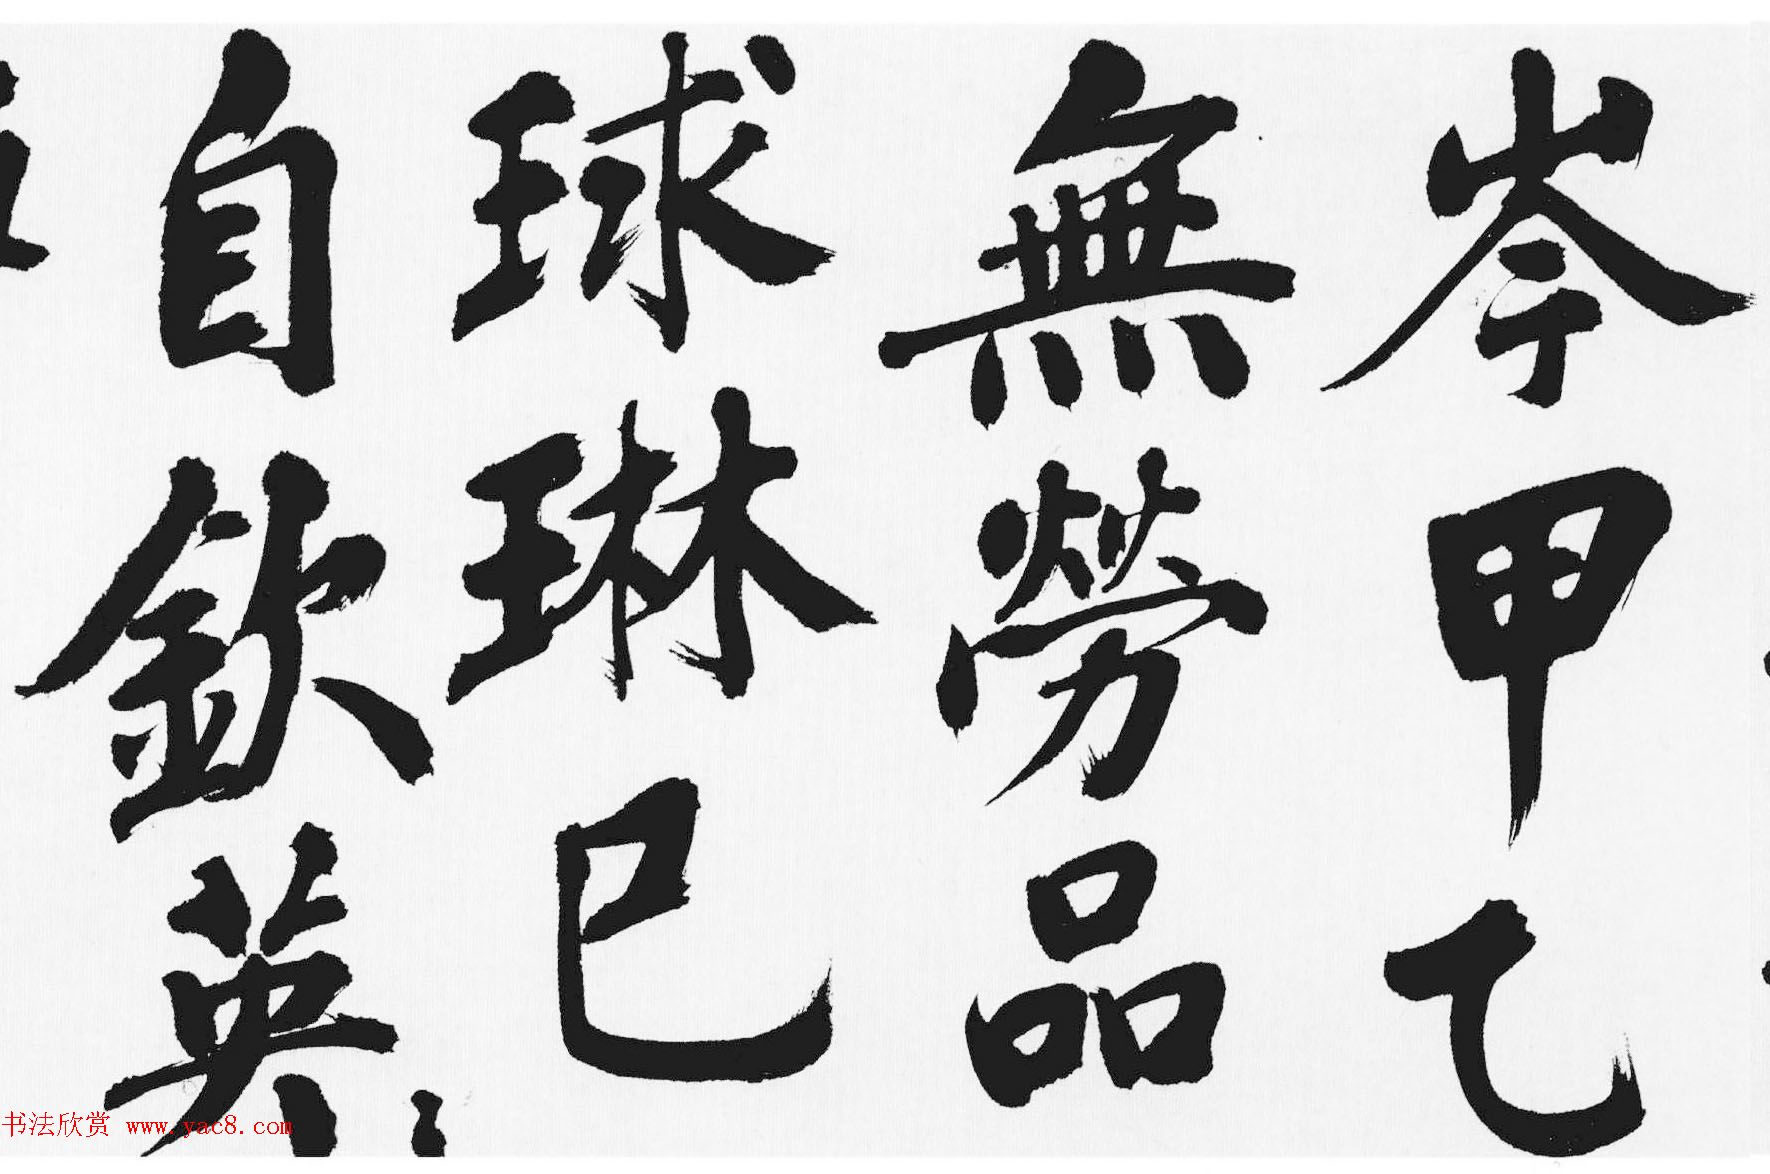 岑甲乙
無勞品
球琳已
自欽英
书法欣赏 www.yac8.com